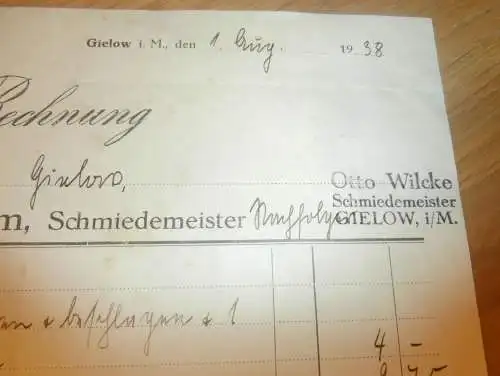 Gielow i. M., den 1. Aug. 1938
Rechnung
Gielow,
Otto Wilcke
Schmiedemeister
GIELOW, i/M.
m, Schmiedemeister Nachfolger
en & beschlagen & 1
4 -